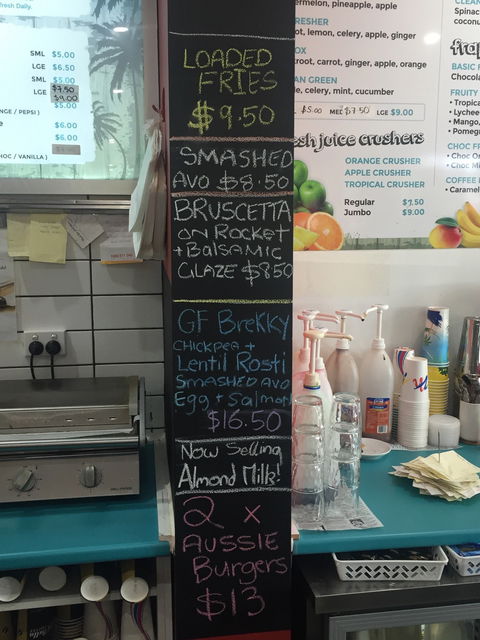 resh Daily.
SML $5.00
LGE $6.50
SML $5.00
LGE $7.50
$9.00
$5.00
NGE / PEPSI )
$6.00
$6.00
HOC / VANILLA )
LOADED
FRIES
$9.50
SMASHED
AVO $8.50
BRUSCETTA
ON ROCKET
+ BALSAMIC
GLAZE $8.50
GF BREKKY
CHICKPEA +
Lentil Rosti
SMASHED AVO
Egg + Salmon
$16.50
Now Selling
Almond Milk!
2 x
AUSSIE
Burgers
$13
melon, pineapple, apple
RESHER
ot, lemon, celery, apple, ginger
OX
troot, carrot, ginger, apple, orange
AN GREEN
le, celery, mint, cucumber
$5.00 MED $7.50 LGE $9.00
esh juice crushers
ORANGE CRUSHER
APPLE CRUSHER
TROPICAL CRUSHER
Regular $7.50
Jumbo $9.00
CLEAN
Spinac
coconu
frap
BASIC F
Chocola
FRUITY
• Tropica
• Lychee
• Mango,
• Pomegr
CHOC FR
• Choc Or
• Choc Mi
COFFEE
• Caramel